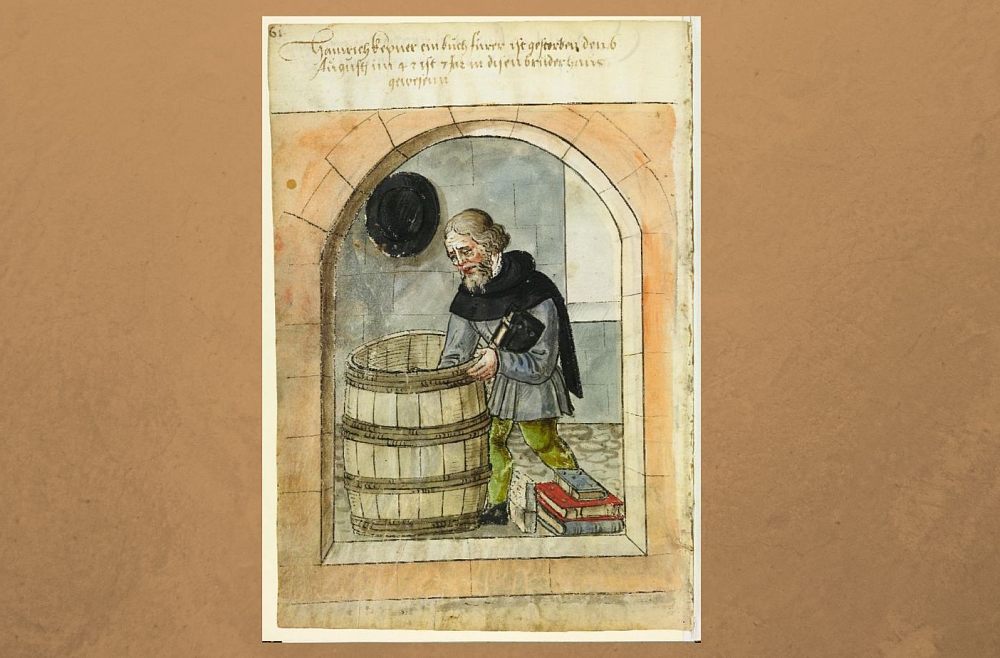 61
Hainrich kepner ein buch fürer ist gestorben den 6
Augusti im 4 2 ist 7 Jar in disen bruderhaus
gewesenn